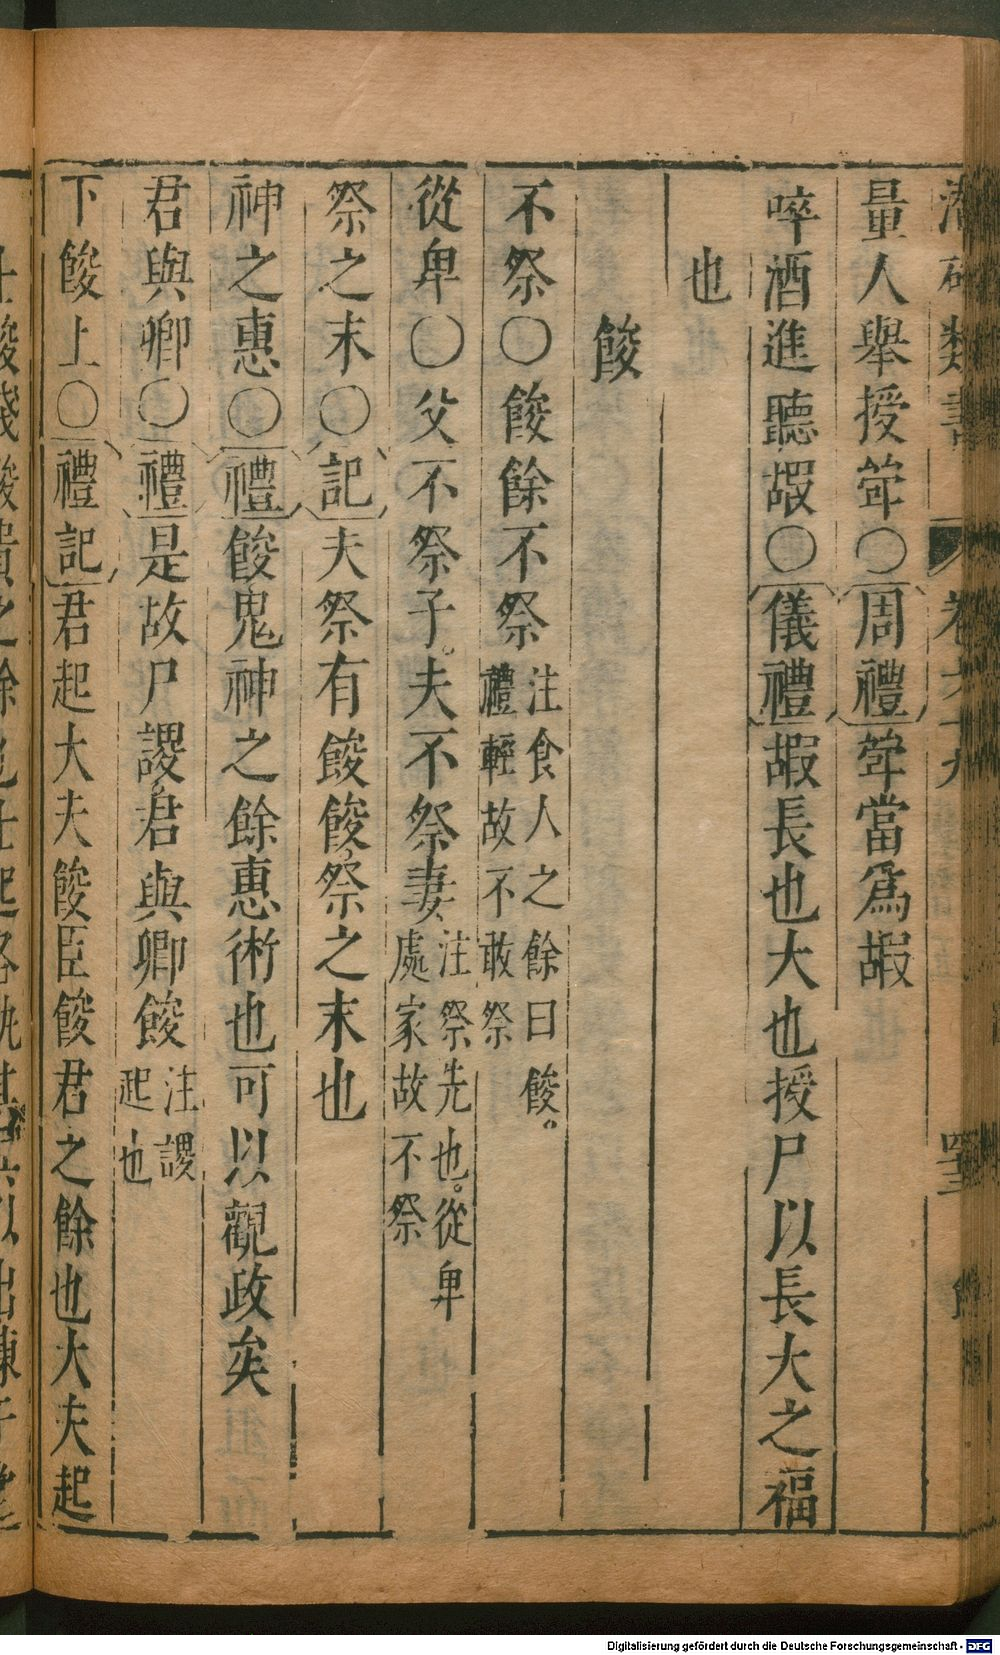 量人舉授斝〇周禮斝當爲嘏
啐酒進聽嘏〇儀禮嘏長也大也授尸以長大之福
也
餕
不祭〇餕餘不祭注食人之餘曰餕。禮輕故不敢祭
從卑〇父不祭子。夫不祭妻、注祭先也。從卑處家故不祭
祭之末〇記夫祭有餕餕祭之末也
神之惠〇禮餕鬼神之餘惠術也可以觀政矣
君與卿〇禮是故尸謖君與卿餕注謖起也
下餕上〇禮記君起大夫餕臣餕君之餘也大夫起
Digitalisierung gefördert durch die Deutsche Forschungsgemeinschaft - DFG